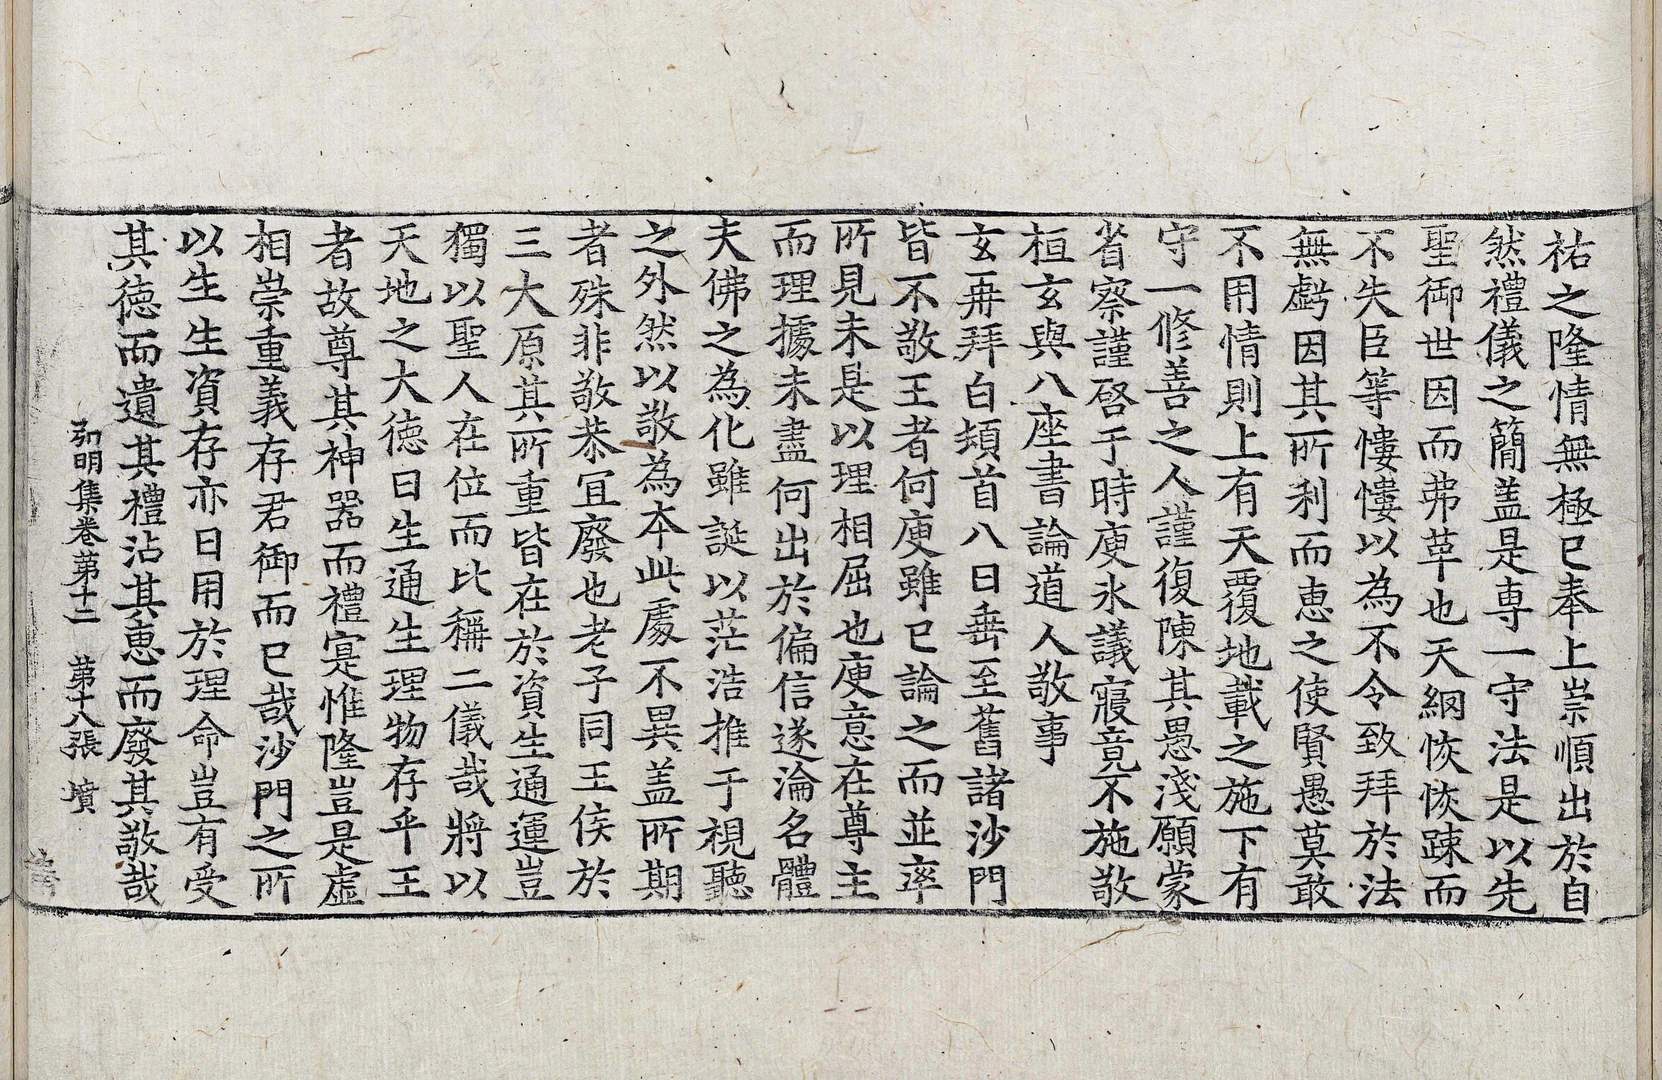 祐之隆情無極已奉上崇順出於自
然禮儀之簡盖是専一守法是以先
聖御世因而弗革也天綱恢恢踈而
不失臣等慺慺以為不令致拜於法
無虧因其所利而惠之使賢愚莫敢
不用情則上有天覆地載之施下有
守一修善之人謹復陳其愚淺願蒙
省察謹啓于時庾氷議寢竟不施敬
桓玄與八座書論道人敬事
玄再拜白頓首八日垂至舊諸沙門
皆不敬王者何庾雖已論之而並率
所見未是以理相屈也庾意在尊主
而理據未盡何出於偏信遂淪名體
夫佛之為化雖誕以茫浩推于視聽
之外然以敬為本此處不異盖所期
者殊非敬恭冝廢也老子同王侯於
三大原其所重皆在於資生通運豈
獨以聖人在位而比稱二儀哉將以
天地之大德曰生通生理物存乎王
者故尊其神器而禮寔惟隆豈是虛
相崇重義存君御而已哉沙門之所
以生生資存亦日用於理命豈有受
其德而遺其禮沾其惠而廢其敬哉
弘明集卷第十二 第十八張 墳